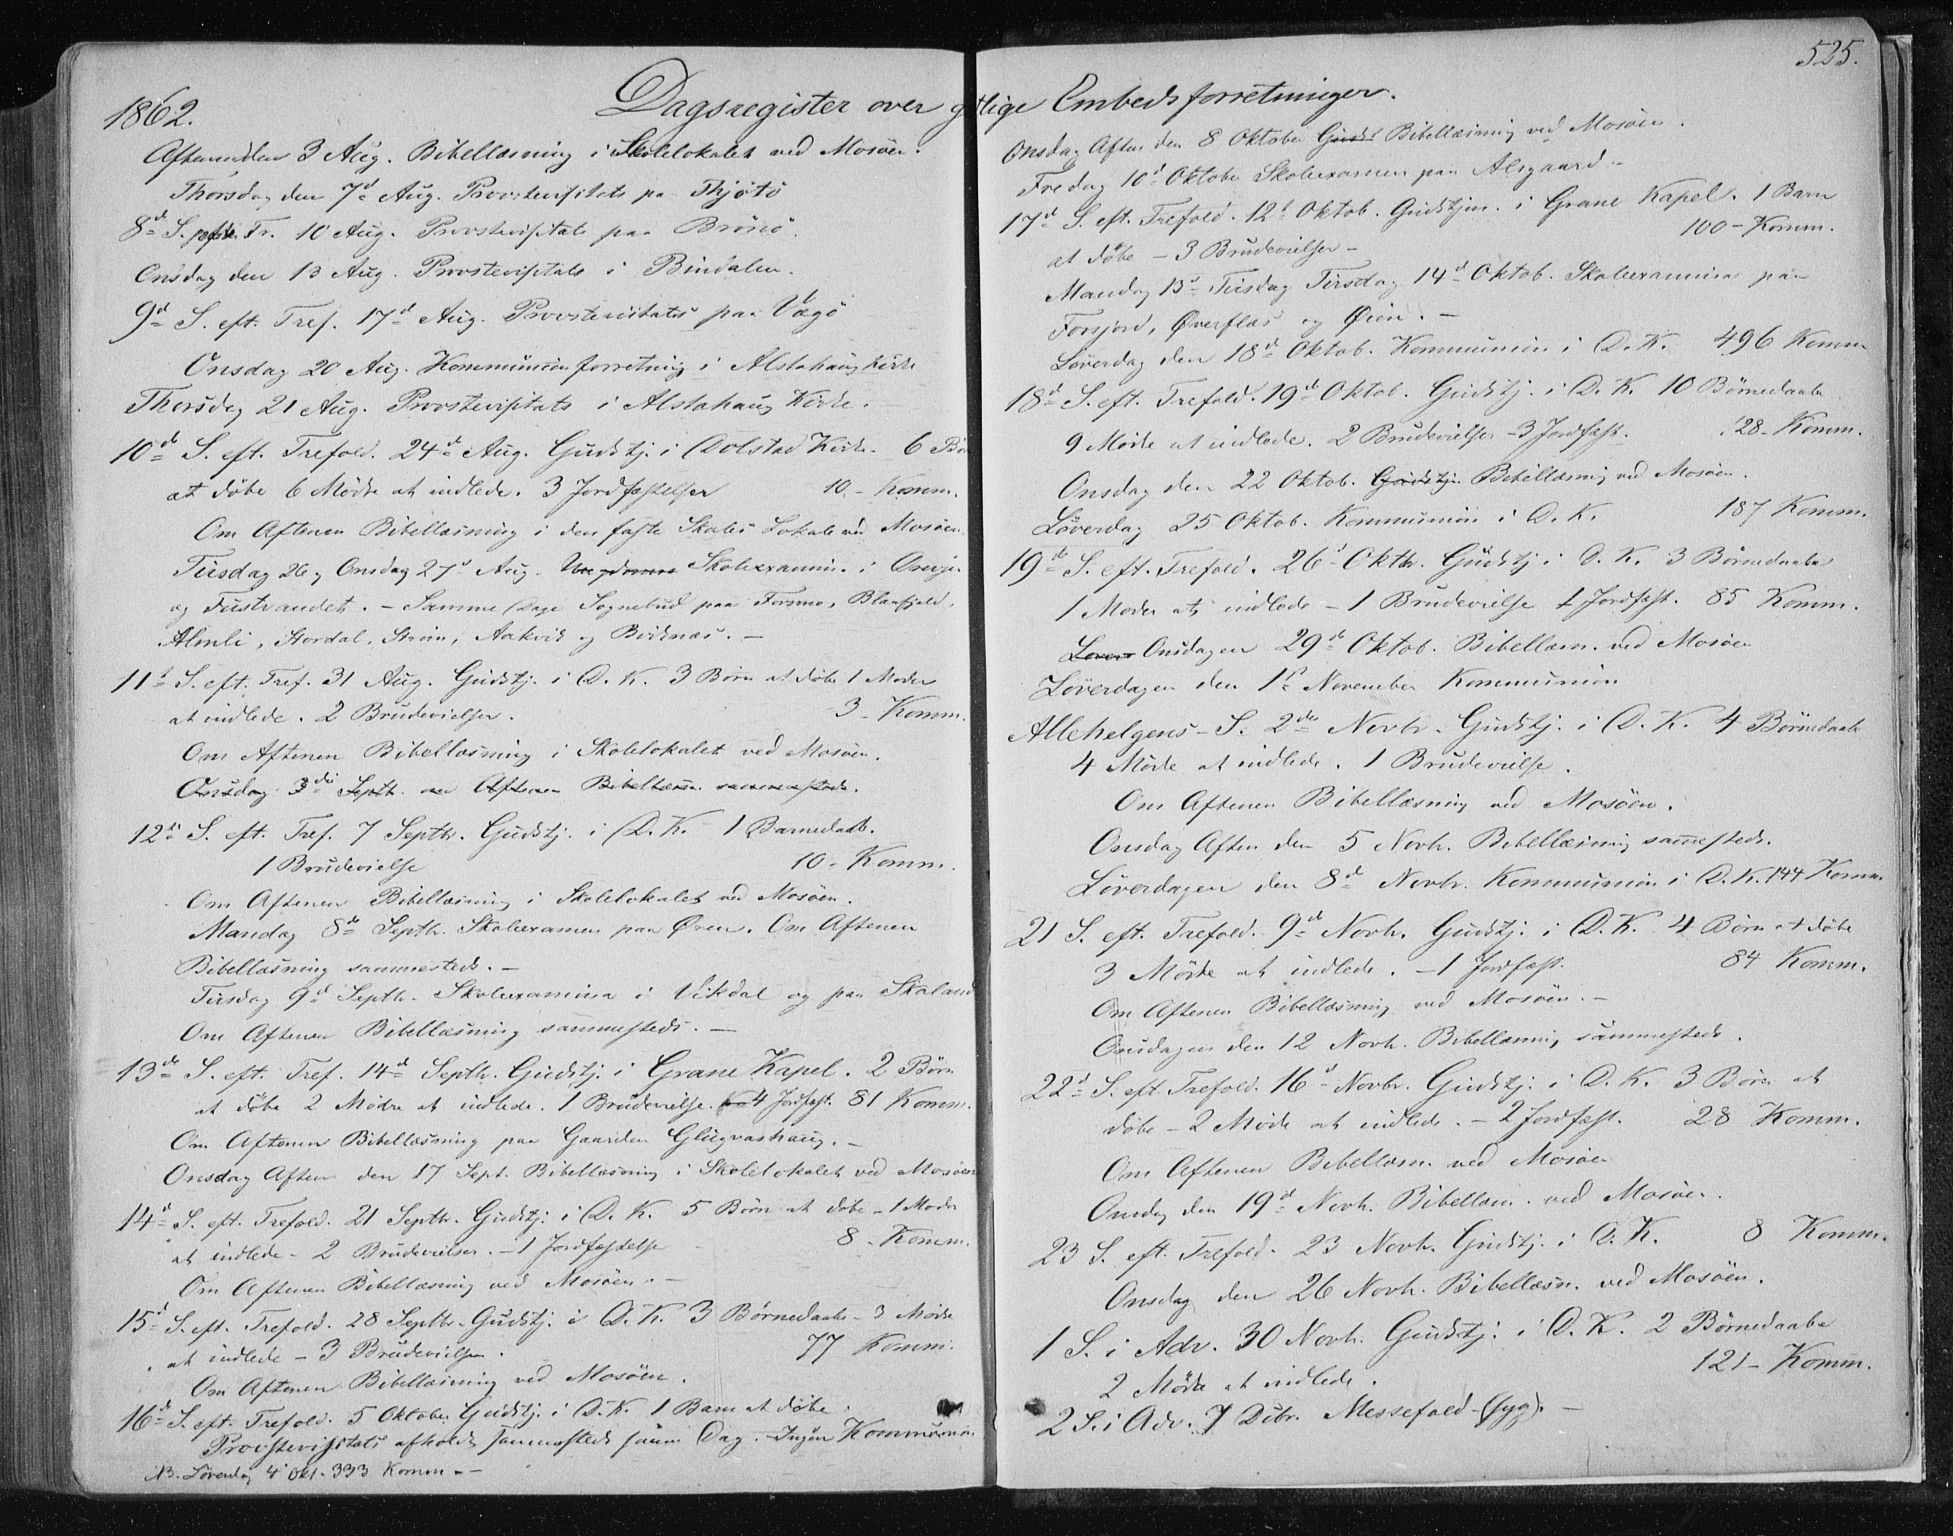 525.
1862. Dagsregister over gstlige Embedsforretninger.
Aftenen den 3 Aug. Bibellæsning i Skolelokalet ved Mosøen.
Thorsdag den 7d Aug. Provstevisitats pa Thjøtø
8d S. eft. Tr. 10 Aug. Provstevisitats paa Brønø.
Onsdag den 13 Aug. Provstevisitats i Bindalen.
9d S. eft. Tref. 17d Aug. Provstevisitats paa Vegø
Onsdag 20 Aug. Kommunionforretning i Alstahaug Kirke
Thorsdag 21 Aug. Provstevisitats i Alstahaug Kirke.
10de S. eft. Trefold. 24de Aug. Gudstj. i Dolstad Kirke. 6 Bør
at døbe 6 Mødre at indlede. 3 Jordfæstelser 10 - Komm.
Om Aftenen Bibellæsning i den faste Skoles Lokale ved Mosøen.
Tirsdag 26 og Onsdag 27d Aug. Skolexamin. i
og Fustvandet. - Samme Dage Sognebud paa Forsmo, Blaafjeld,
Almli, Stordal, Strøm, Aakvik og Bødsnæs. -
11d S. eft. Tref. 31 Aug. Gudstj. i D. K. 3 Børn at døbe 1 Moder
at indlede. 2 Brudevielser. 3 - Komm.
Om Aftenen Bibellæsning i Skolelokalet ved Mosøen.
Onsdag 3die Septb. om Aftenen Bibellæsn. sammesteds.
12te S. eft. Tref. 7 Septbr. Gudstj. i D. K. 1 Barnedaab.
1 Brudevielse 10 - Komm.
Om Aftenen Bibellæsning i Skolelokalet ved Mosøen.
Mandag 8de Septbr. Skolexamen paa Øren. Om Aftenen
Bibellæsning sammesteds. -
Tirsdag 9d Septbr. Skolexamina i Vikdal og paa Skaland
Om Aftenen Bibellæsning sammesteds. -
13de S. eft. Tref. 14d Septbr. Gudstj. i Grane Kapel. 2 Børn
at døbe 2 Mødre at indlede. 1 Brudevielse. 4 Jordfæst. 81 Komm.
Om Aftenen Bibellæsning paa Gaarden Glugvashaug. -
Onsdag Aften den 17 Sept. Bibellæsning i Skolelokalet ved Mosøen
14d S. eft. Trefold. 21 Septbr. Gudstj. i D. K. 5 Børn at døbe - 1 Moder
at indlede - 2 Brudevielser. - 1 Jordfæstelse 8 - Komm.
Om Aftenen Bibellæsning ved Mosøen. -
15d S. eft. Trefold. 28 Septbr. Gudstj. i D. K. 3 Børnedaabe - 3 Mødre
at indlede - 3 Brudevielser. 77 Komm.
Om Aftenen Bibellæsning ved Mosøen.
16d S. eft. Trefold. 5 Oktober Gudstj. i D. K. 1 Barn at døbe.
Provstevisitats afholdt sammesteds samme Dag. - Ingen Kommunion
NB. Løverdag 4d Okt. 393 Komm. -
Onsdag Aften den 8 Oktober Gudst Bibellæsning ved Mosøen.
Fredag 10d Oktober Skolexamen paa Alsgaard -
17d S. eft. Trefold. 12d Oktob. Gudstjen. i Grane Kapel. 1 Barn
at døbe - 3 Brudevielser - 100 - Komm.
Mandag 13d Tirsdag Tirsdag 14d Oktob. Skolexamina paa
Forsjord, Øverflas og Øien. -
Løverdag den 18d Oktob. Kommunion i D. K. 496 Komm
18d S. eft. Trefold. 19d Oktob. Gudstj. i D. K. 10 Børnedaabe
9 Mødre at indlede. 2 Brudevielser - 3 Jordfæst. 28 - Komm.
Onsdag den 22 Oktob. Gudstj. Bibellæsning ved Mosøen.
Løverdag 25 Oktob. Kommunion i D. K. 187 Komm.
19de S. eft. Trefold. 26d Oktbr. Gudstj. i D. K. 3 Børnedaabe
1 Moder at indlede - 1 Brudevielse 1 Jordfæst. 85 Komm.
Løver Onsdagen 29de Oktob. Bibellæsn. ved Mosøen
Løverdagen den 1st November Kommunion
Allehelgens - S. 2den Novbr. Gudstj. i D. K. 4 Børnedaabe
4 Mødre at indlede. 1 Brudevielse.
Om Aftenen Bibellæsning ved Mosøen.
Onsdag Aften den 5 Novbr. Bibellæsning sammesteds.
Løverdagen den 8d Novbr. Kommunion i D. K. 144 Komm.
21 S. eft. Trefold. 9de Novbr. Gudstj. i D. K. 4 Børn at døbe
3 Mødre at indlede. - 1 Jordfæst. 84 Komm.
Om Aftenen Bibellæsning ved Mosøen. -
Onsdagen den 12 Novbr. Bibellæsning sammesteds.
22d S. eft. Trefold. 16d Novbr. Gudstj. i D. K. 3 Børn at
døbe - 2 Mødre at indlede. - 2 Jordfæst. 28 Komm.
Om Aftenen Bibellæsn. ved Mosøen
Onsdag den 19d Novbr. Bibellæsn. ved Mosøen.
23 S. eft. Trefold. 23 Novbr. Gudstj. i D. K. 8 Komm.
Onsdag den 26 Novbr. Bibellæsn. ved Mosøen.
1 S. i Adv. 30 Novbr. Gudstj. i D. K. 2 Børnedaabe
2 Mødre at indlede. 121 - Komm.
2 S. i Adv. 7 Dcbr. Messefald - (syg). -